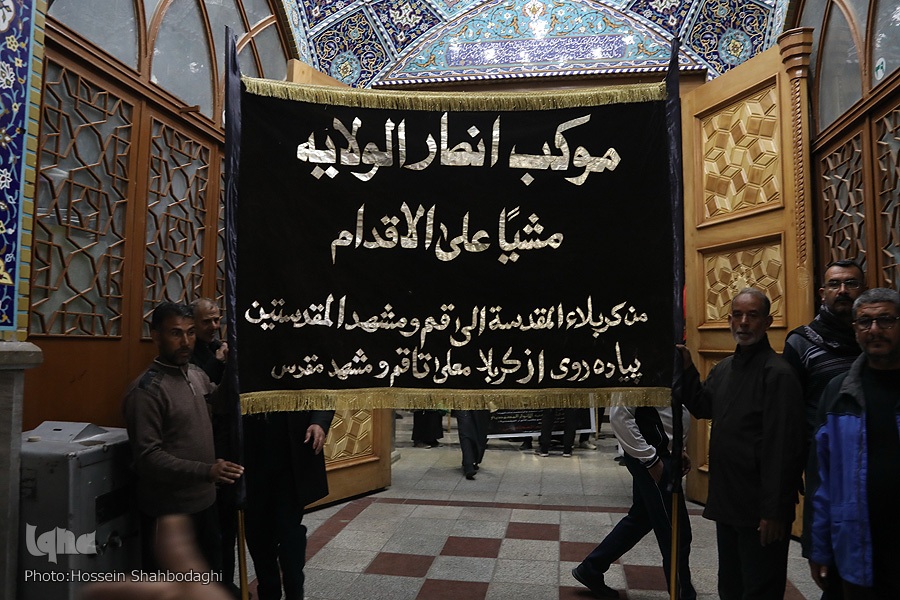 موكب انصار الولایه
مشيًا على الاقدام
من كربلاء المقدسة الى قم و مشهد المقدستين
پیاده روی از کربلا معلی تا قم و مشهد مقدس
iqna
Photo:Hossein Shahbodaghi